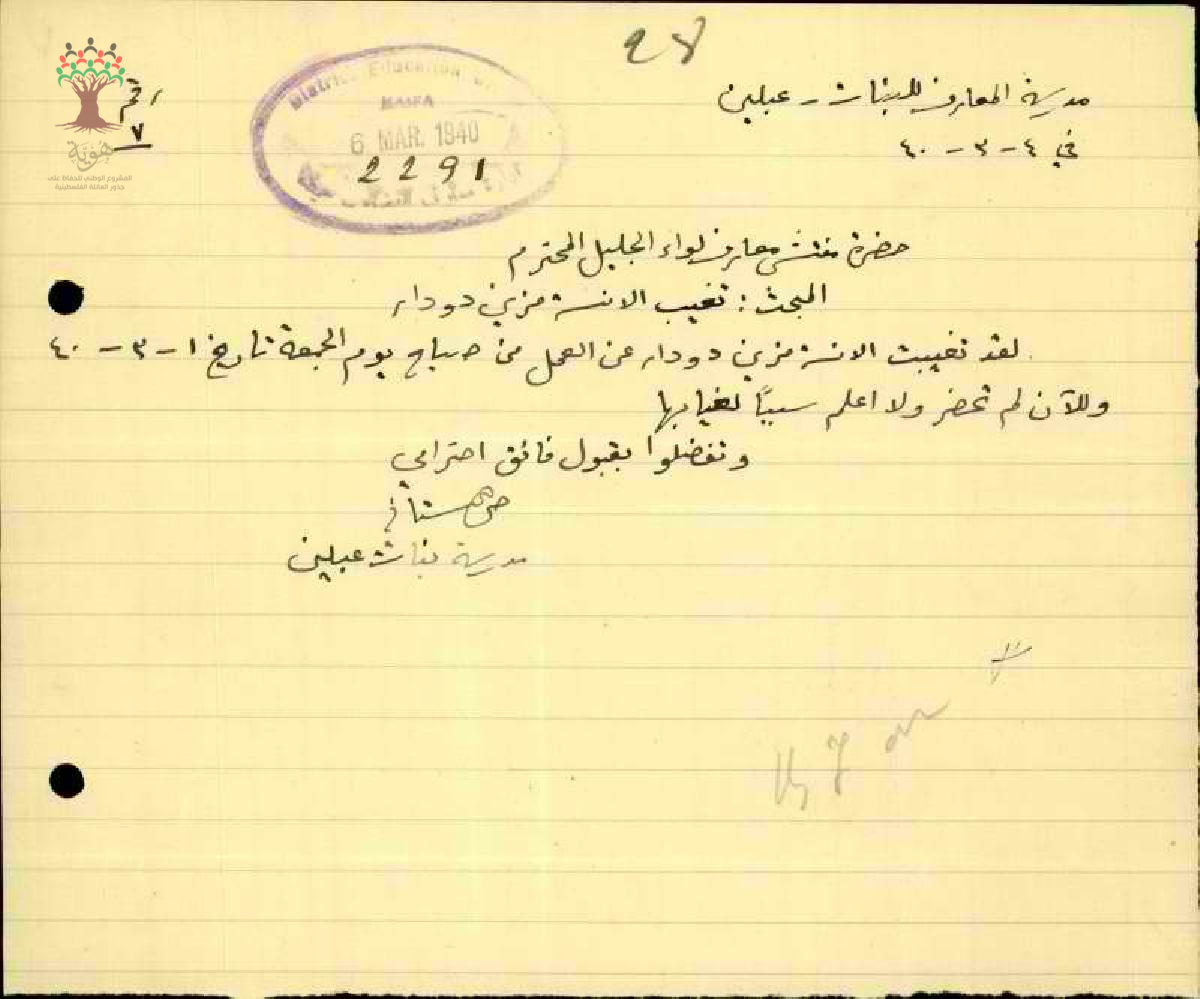 28
مدرسة المعارف للبنات - عبلين
رقم
٧
في ٤ - ٣ - ٤٠
District Education
HAIFA
6 MAR. 1940
2291
هوية
المشروع الوطني للحفاظ على
جذور العائلة الفلسطينية
حضرة مفتش معارف لواء الجليل المحترم
المبحث : تغيب الانسة مزين دودار
لقد تغيبت الانسة مزين دودار عن العمل من صباح يوم الجمعة تاريخ ١ - ٣ - ٤٠
وللآن لم تحضر ولا اعلم سببًا لغيابها
وتفضلوا بقبول فائق احترامي
مدرسة بنات عبلين